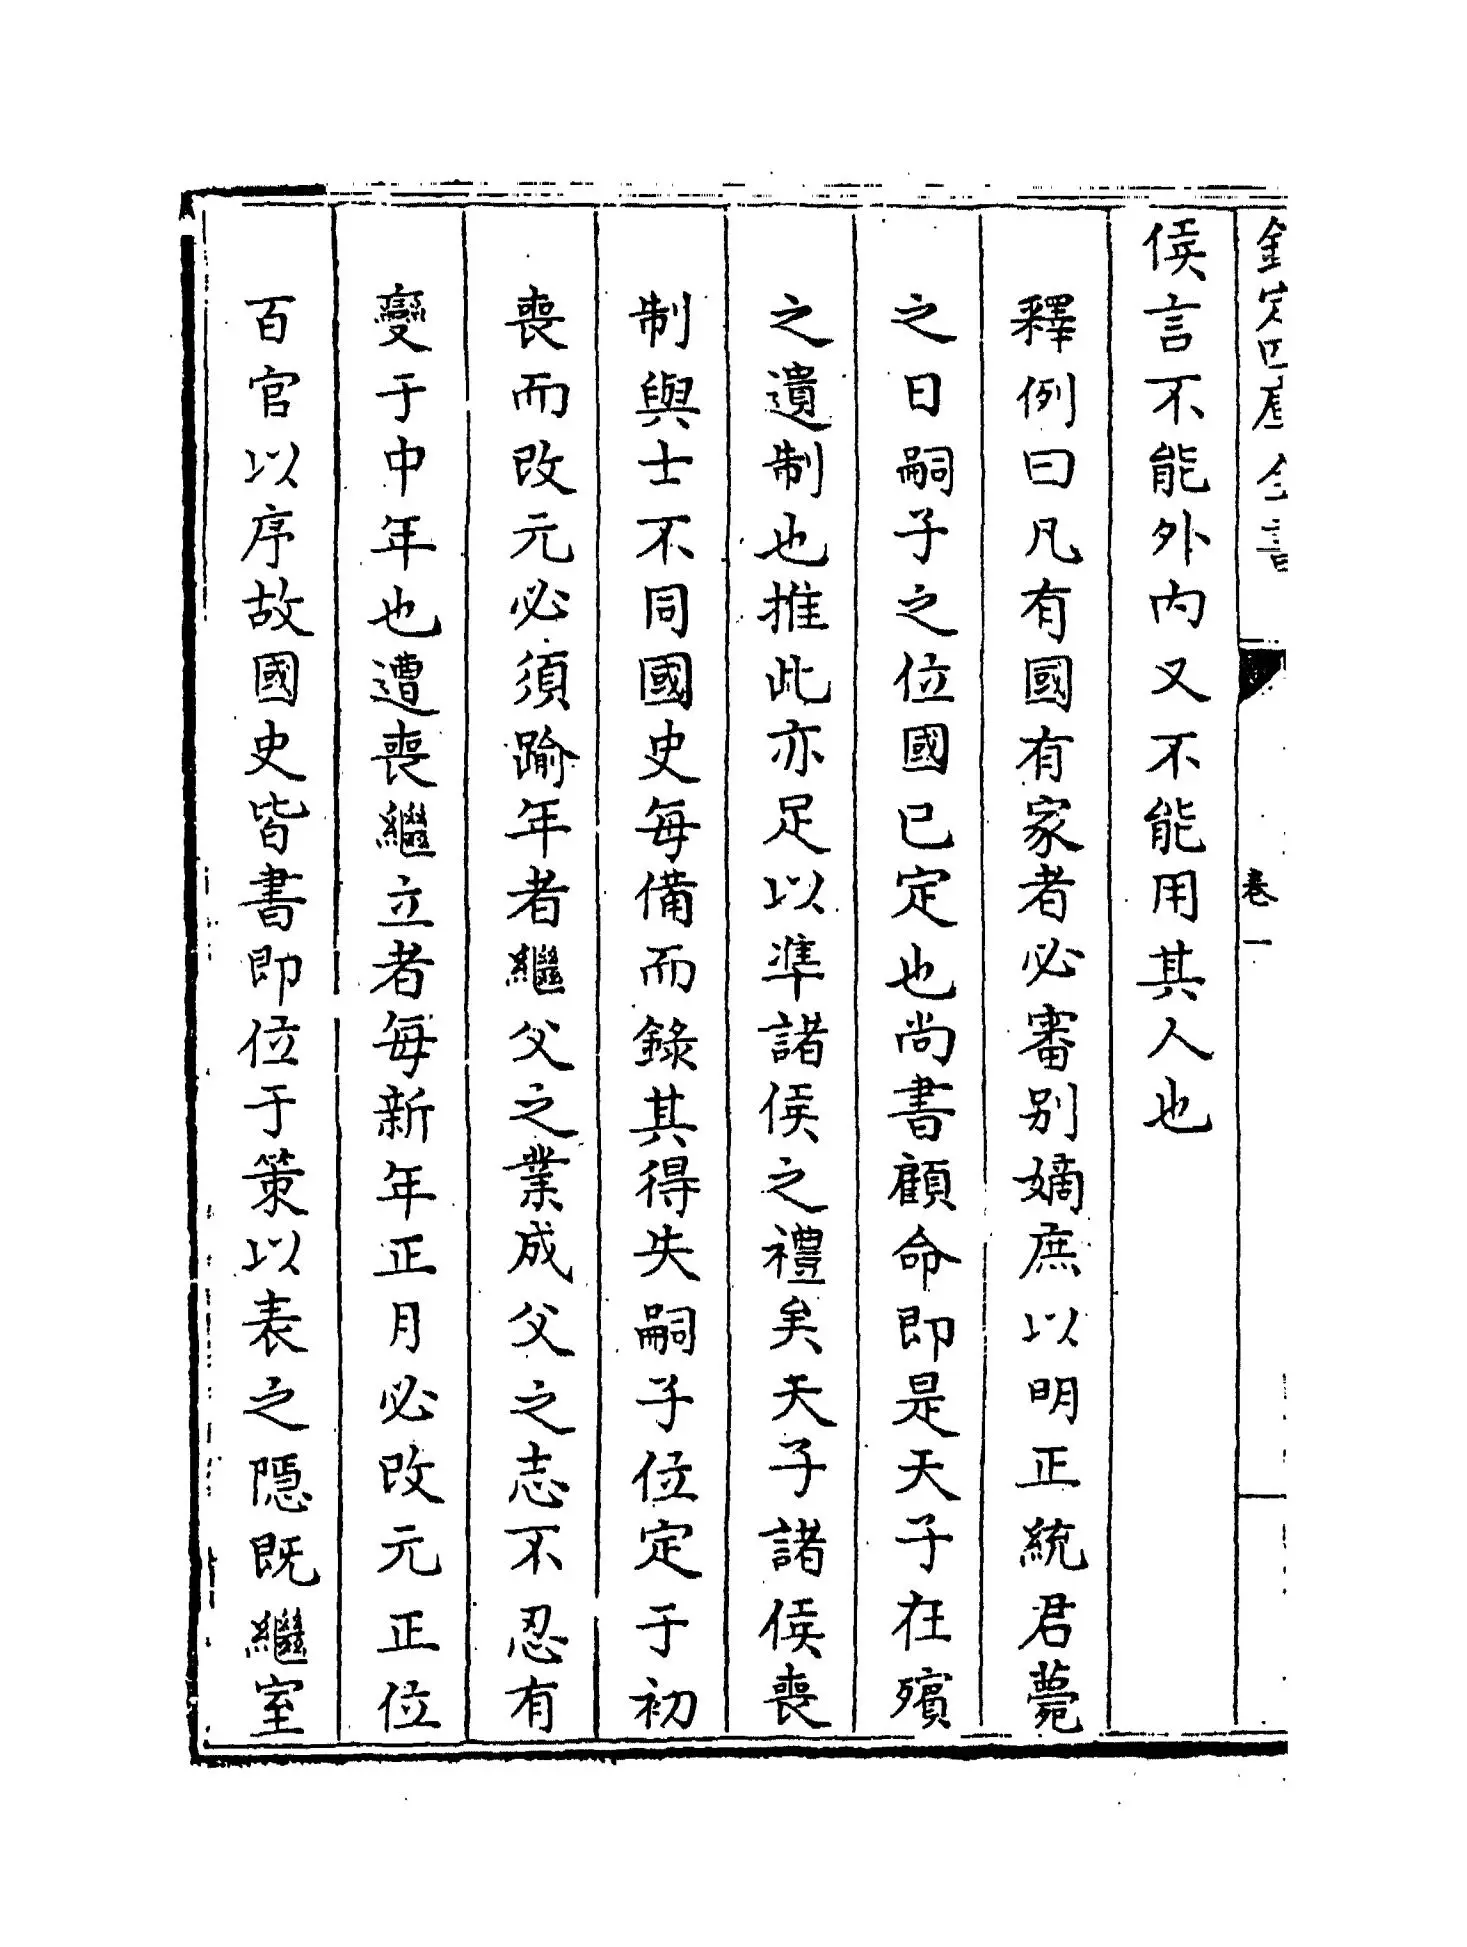 欽定四庫全書
卷一
侯言不能外內又不能用其人也
釋例曰凡有國有家者必審别嫡庶以明正統君薨
之日嗣子之位國已定也尚書顧命即是天子在殯
之遺制也推此亦足以準諸侯之禮矣天子諸侯喪
制與士不同國史每備而錄其得失嗣子位定于初
喪而改元必須踰年者繼父之業成父之志不忍有
變于中年也遭喪繼立者每新年正月必改元正位
百官以序故國史皆書即位于策以表之隱既繼室